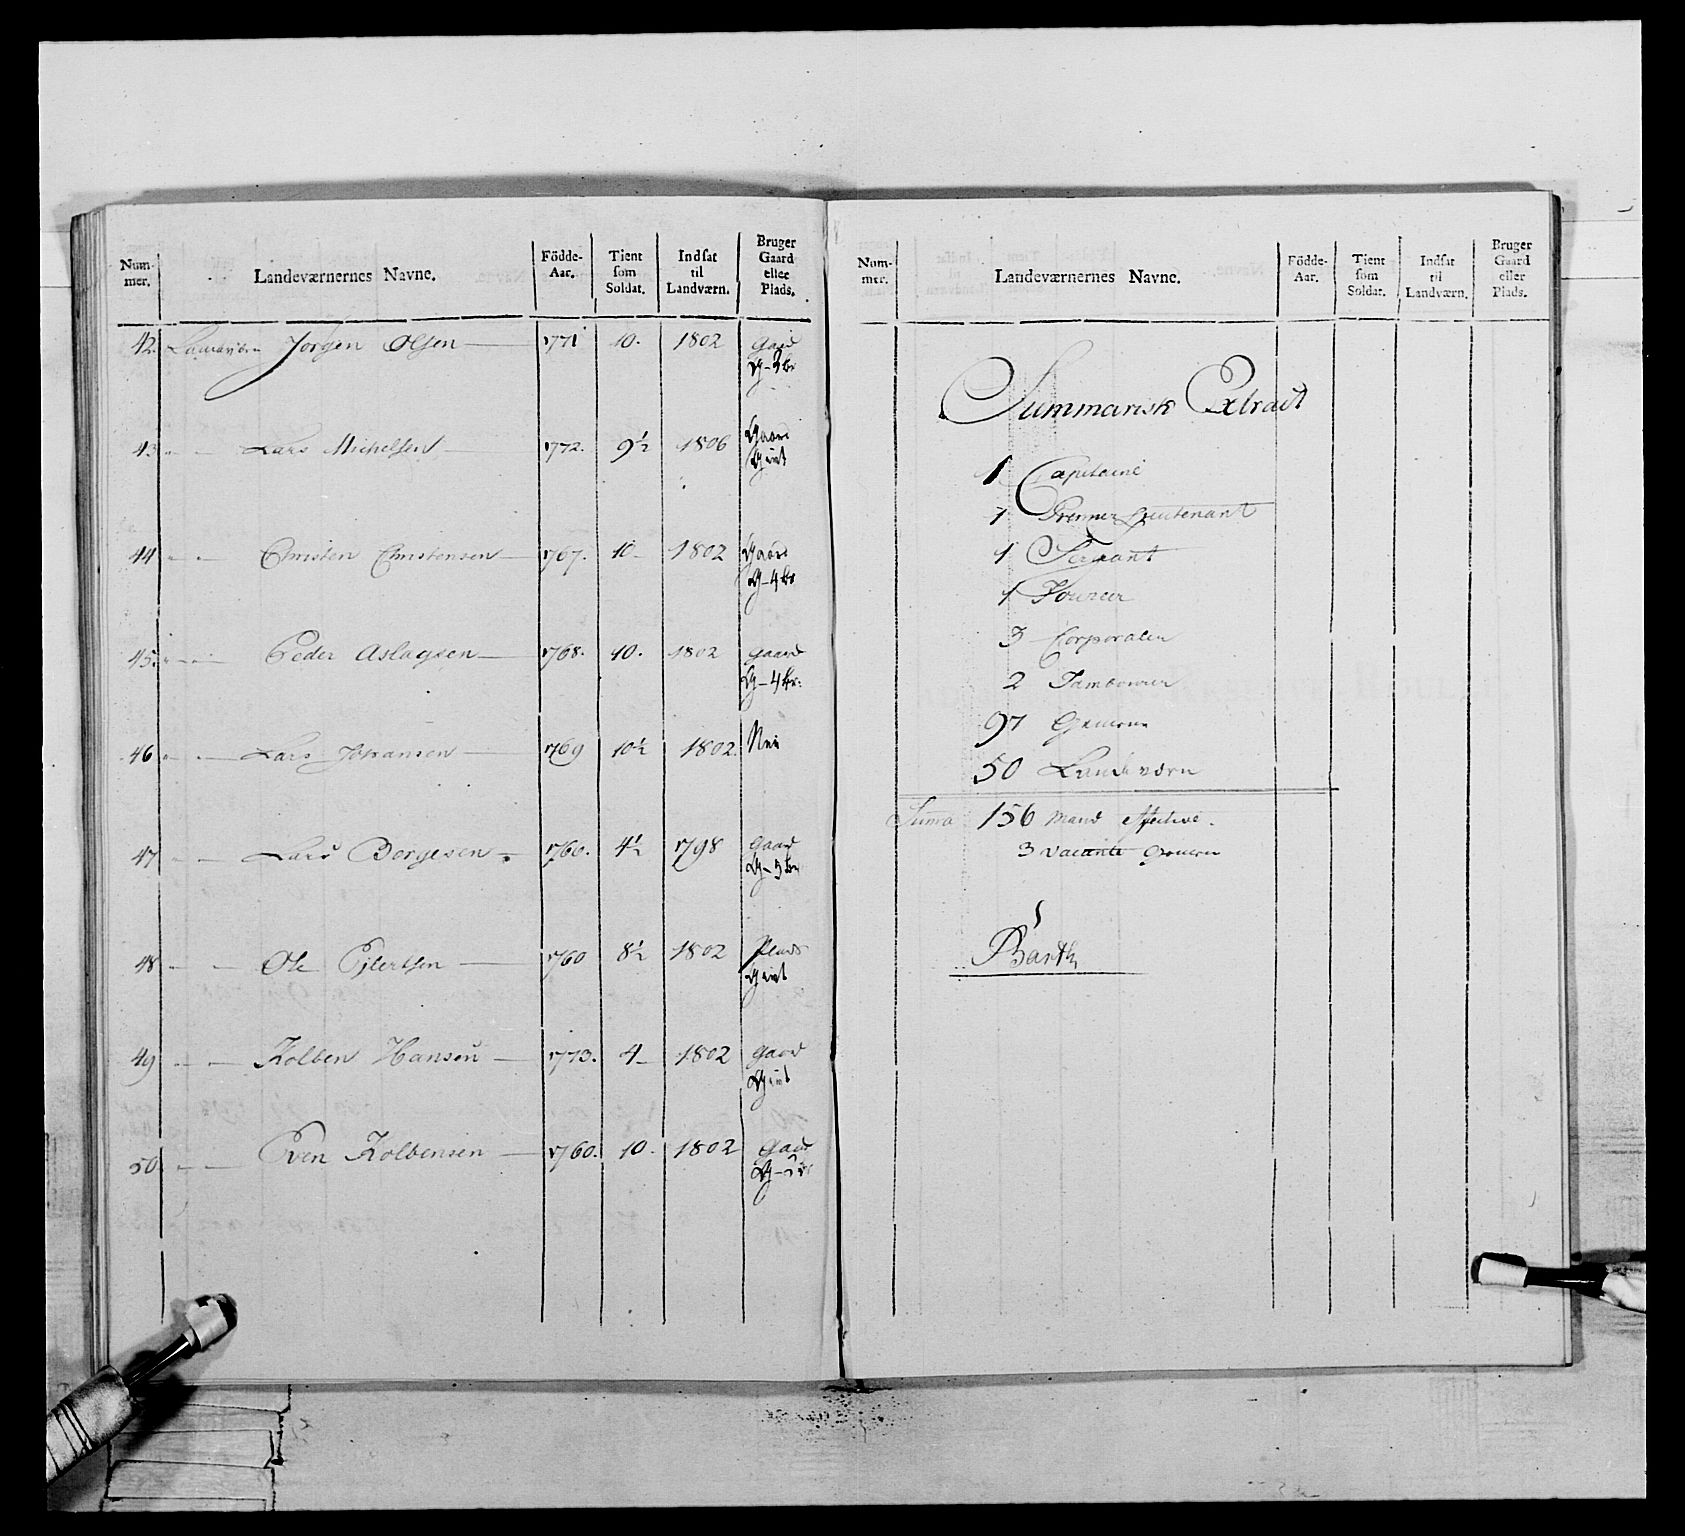 Num- mer. Landeværnernes Navne. Födde- Aar. Tient som Soldat. Indsat til Landværn. Bruger Gaard eller Plads.
42. Jorgen Olsen 1771 10. 1802 Gaard
43 Lars Michelsen 1772. 9½ 1806 Gaard
Givt
44 Christen Christensen 1767. 10 1802 Gaard
G-4br
45. Peder Aslagsen 1768. 10. 1802 Gaard
G-4br:
46 Lars Johansen 1769 10½ 1802. Nei
47 Lars Borgesen 1760. 4½ 1798 Gaard
G-5br
48 Ole Ejlertsen 1760 8½ 1802 Plads
Givt
49 Kolben Hansen 1773. 4 1802 Gaard
Givt
50 Even Kolbensen 1760. 10. 1802 Gaard
Num- mer. Landeværnernes Navne. Födde- Aar. Tient som Soldat. Indsat til Landværn. Bruger Gaard eller Plads.
Summarisk Extract
1 Capitaine
1 Premier Lieutenant
1 Sergeant
1 Fourier
3 Corporaler
2 Tambourer
97 Gemene
50 Landeværn
Suma 156 Mand effective.
3 vacante Gemene
Barth